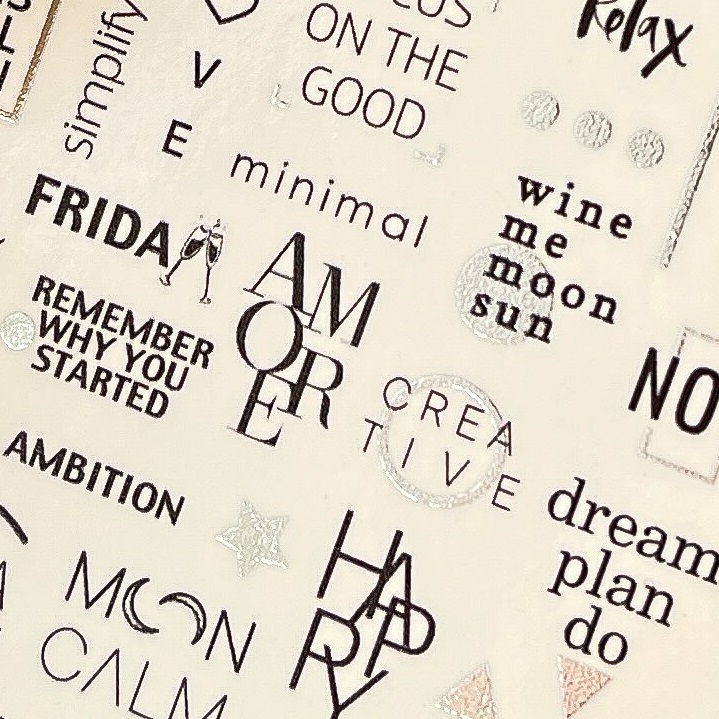 simplify
V
E
ON THE
GOOD
Relax
minimal
wine
me
moon
sun
FRIDAY
REMEMBER
WHY YOU
STARTED
AM
OR
E
CREA
TIVE
NO
AMBITION
dream
plan
do
HA
PP
Y
MOON
CALM